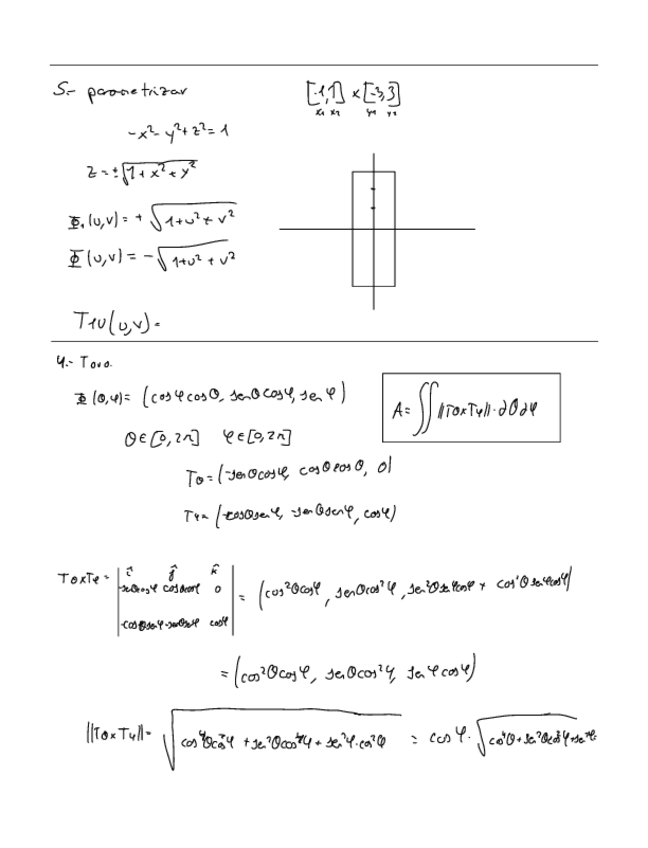 5.- parametrizar
[-1,1] x [-3,3]
x1 x2 y1 y2
-x² - y² + z² = 1
z = ±√(1 + x² + y²)
Φ₁(u,v) = + √(1+u² + v²)
Φ(u,v) = - √(1+u² + v²)
T1u(u,v) =
4.- Toro.
Φ(θ,φ) = (cosφ cosθ, senθ cosφ, senφ)
A = ∬ ||Tθ x Tφ|| · ∂θ ∂φ
θ ∈ [0, 2π] φ ∈ [0, 2π]
Tθ = (-senθ cosφ, cosθ cosθ, 0)
Tφ = (-cosθ senφ, -senθ senφ, cosφ)
Tθ x Tφ = | î ĵ k̂ |
| -senθ cosφ cosθ cosφ 0 | = (cos²θ cosφ, senθ cos²φ, sen²θ senφ cosφ + cos²θ senφ cosφ)
| -cosθ senφ -senθ senφ cosφ |
= (cos²θ cosφ, senθ cos²φ, senφ cosφ)
||Tθ x Tφ|| = √(cos⁴θ cos²φ + sen²θ cos⁴φ + sen²φ · cos²φ) = cosφ · √(cos⁴θ + sen²θ cos²φ + sen²φ